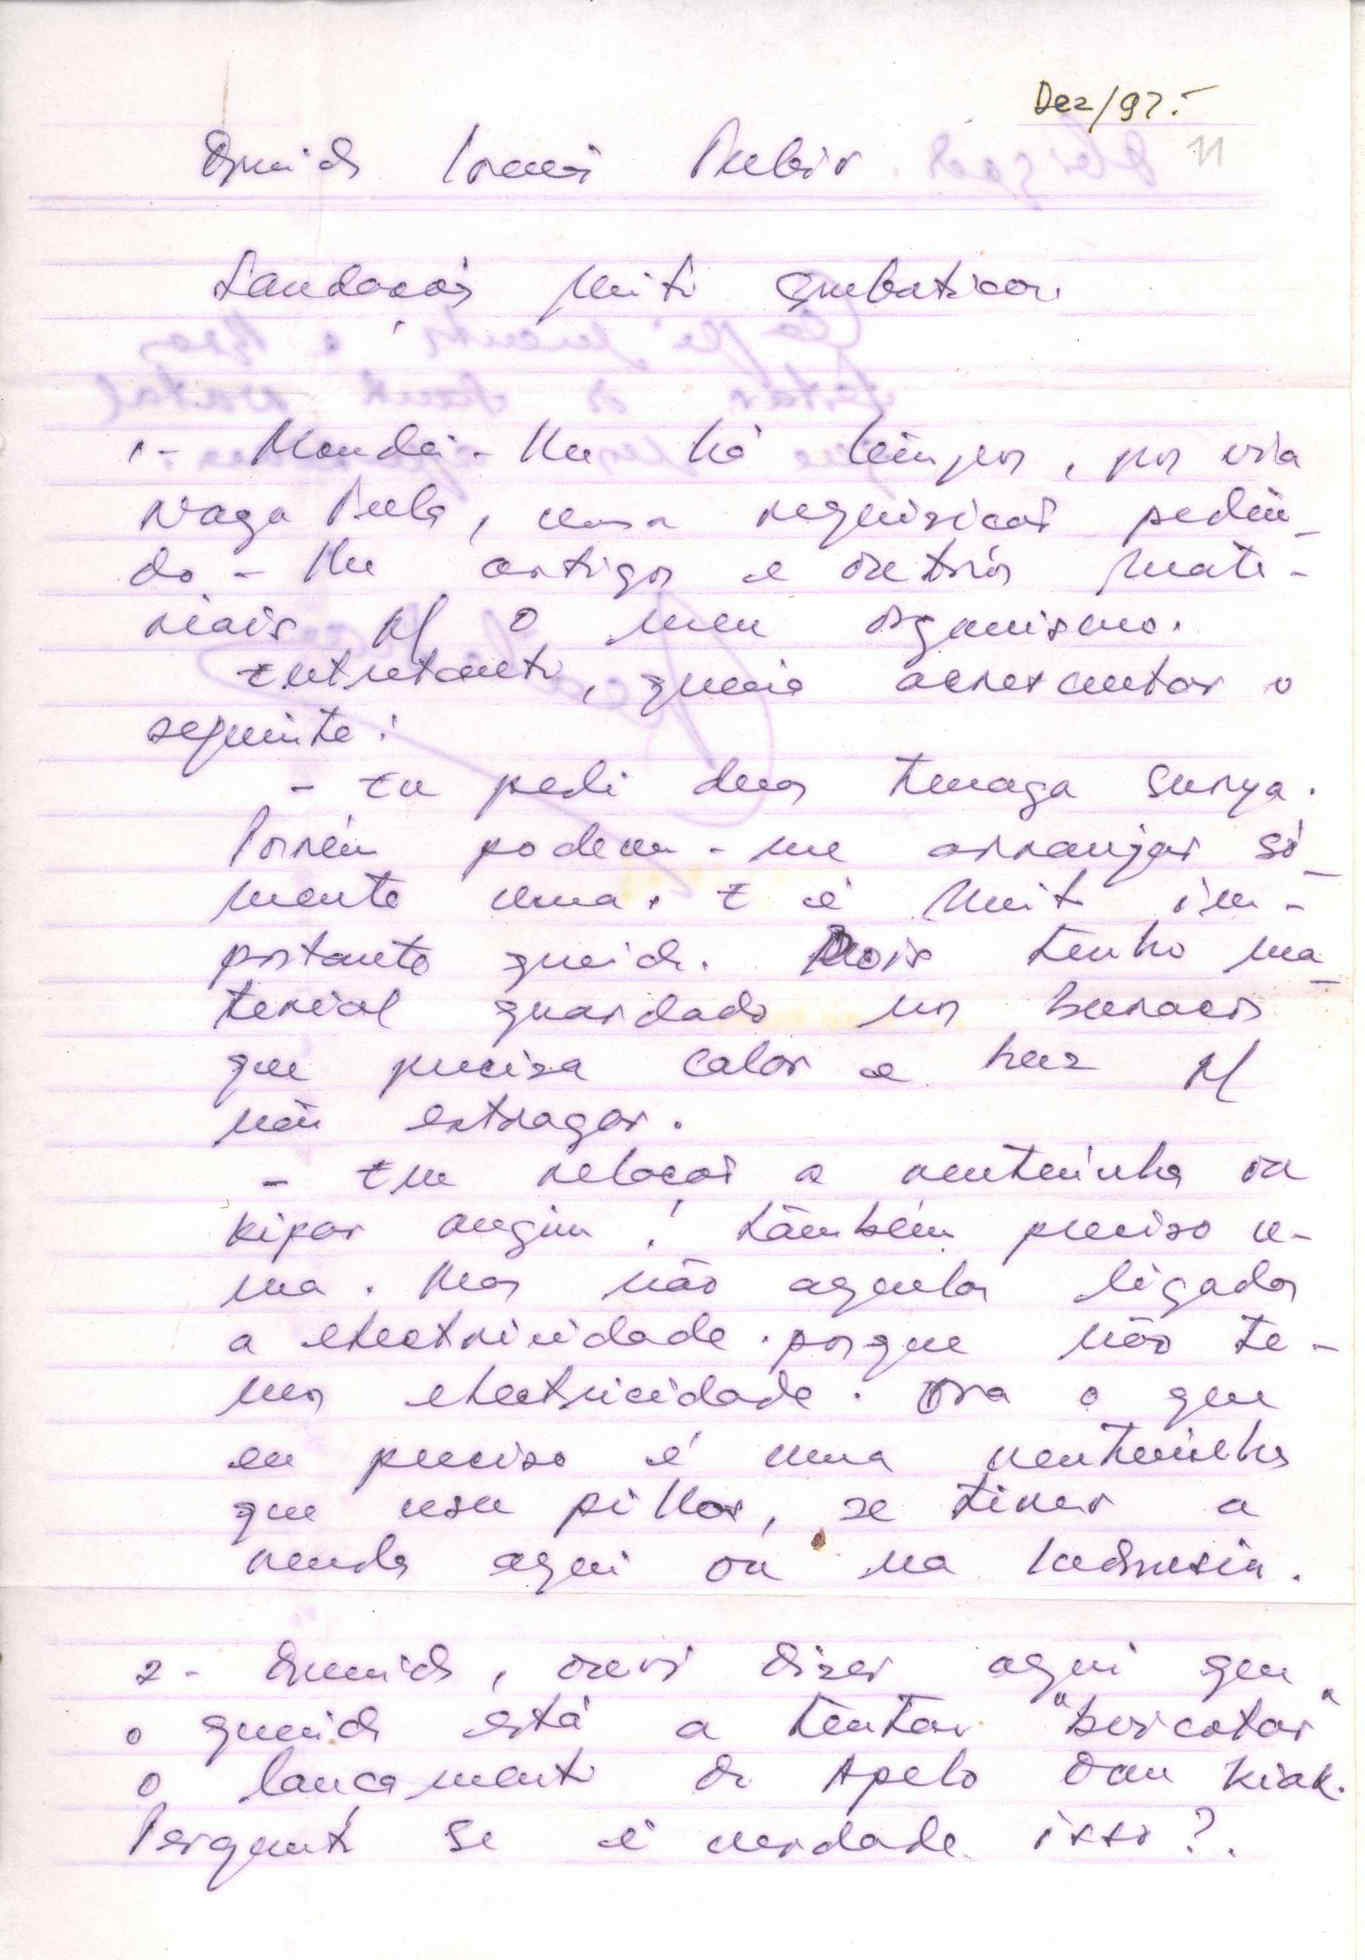 Dez/97.-
11
Querido Irmão Rubir
Saudações muito combativas.
1- Mandei-lhe há tempos, por via
Naga Bula, uma requisição pedin-
do-lhe artigos e outros mate-
riais p/ o meu organismo.
Entretanto, queria acrescentar o
seguinte:
- Eu pedi duas tenaga surya.
Porém podem-me arranjar só-
mente uma. E é muito im-
portante querido. Pois tenho ma-
terial guardado nos buracos
que precisa calor e luz p/
não estragar.
- Em relação a ventoinha ou
kipas angin! Também preciso u-
ma. Mas não aquelas ligadas
a electricidade porque não te-
mos electricidade. Ora o que
eu preciso é uma ventoinha
que usa pilhas, se tiver a
venda aqui ou na Indonésia.
2- Querido, ouvi dizer aqui que
o querido está a tentar "boicotar"
o lançamento do Apelo Dau Kiak.
Pergunto se é verdade isso?.